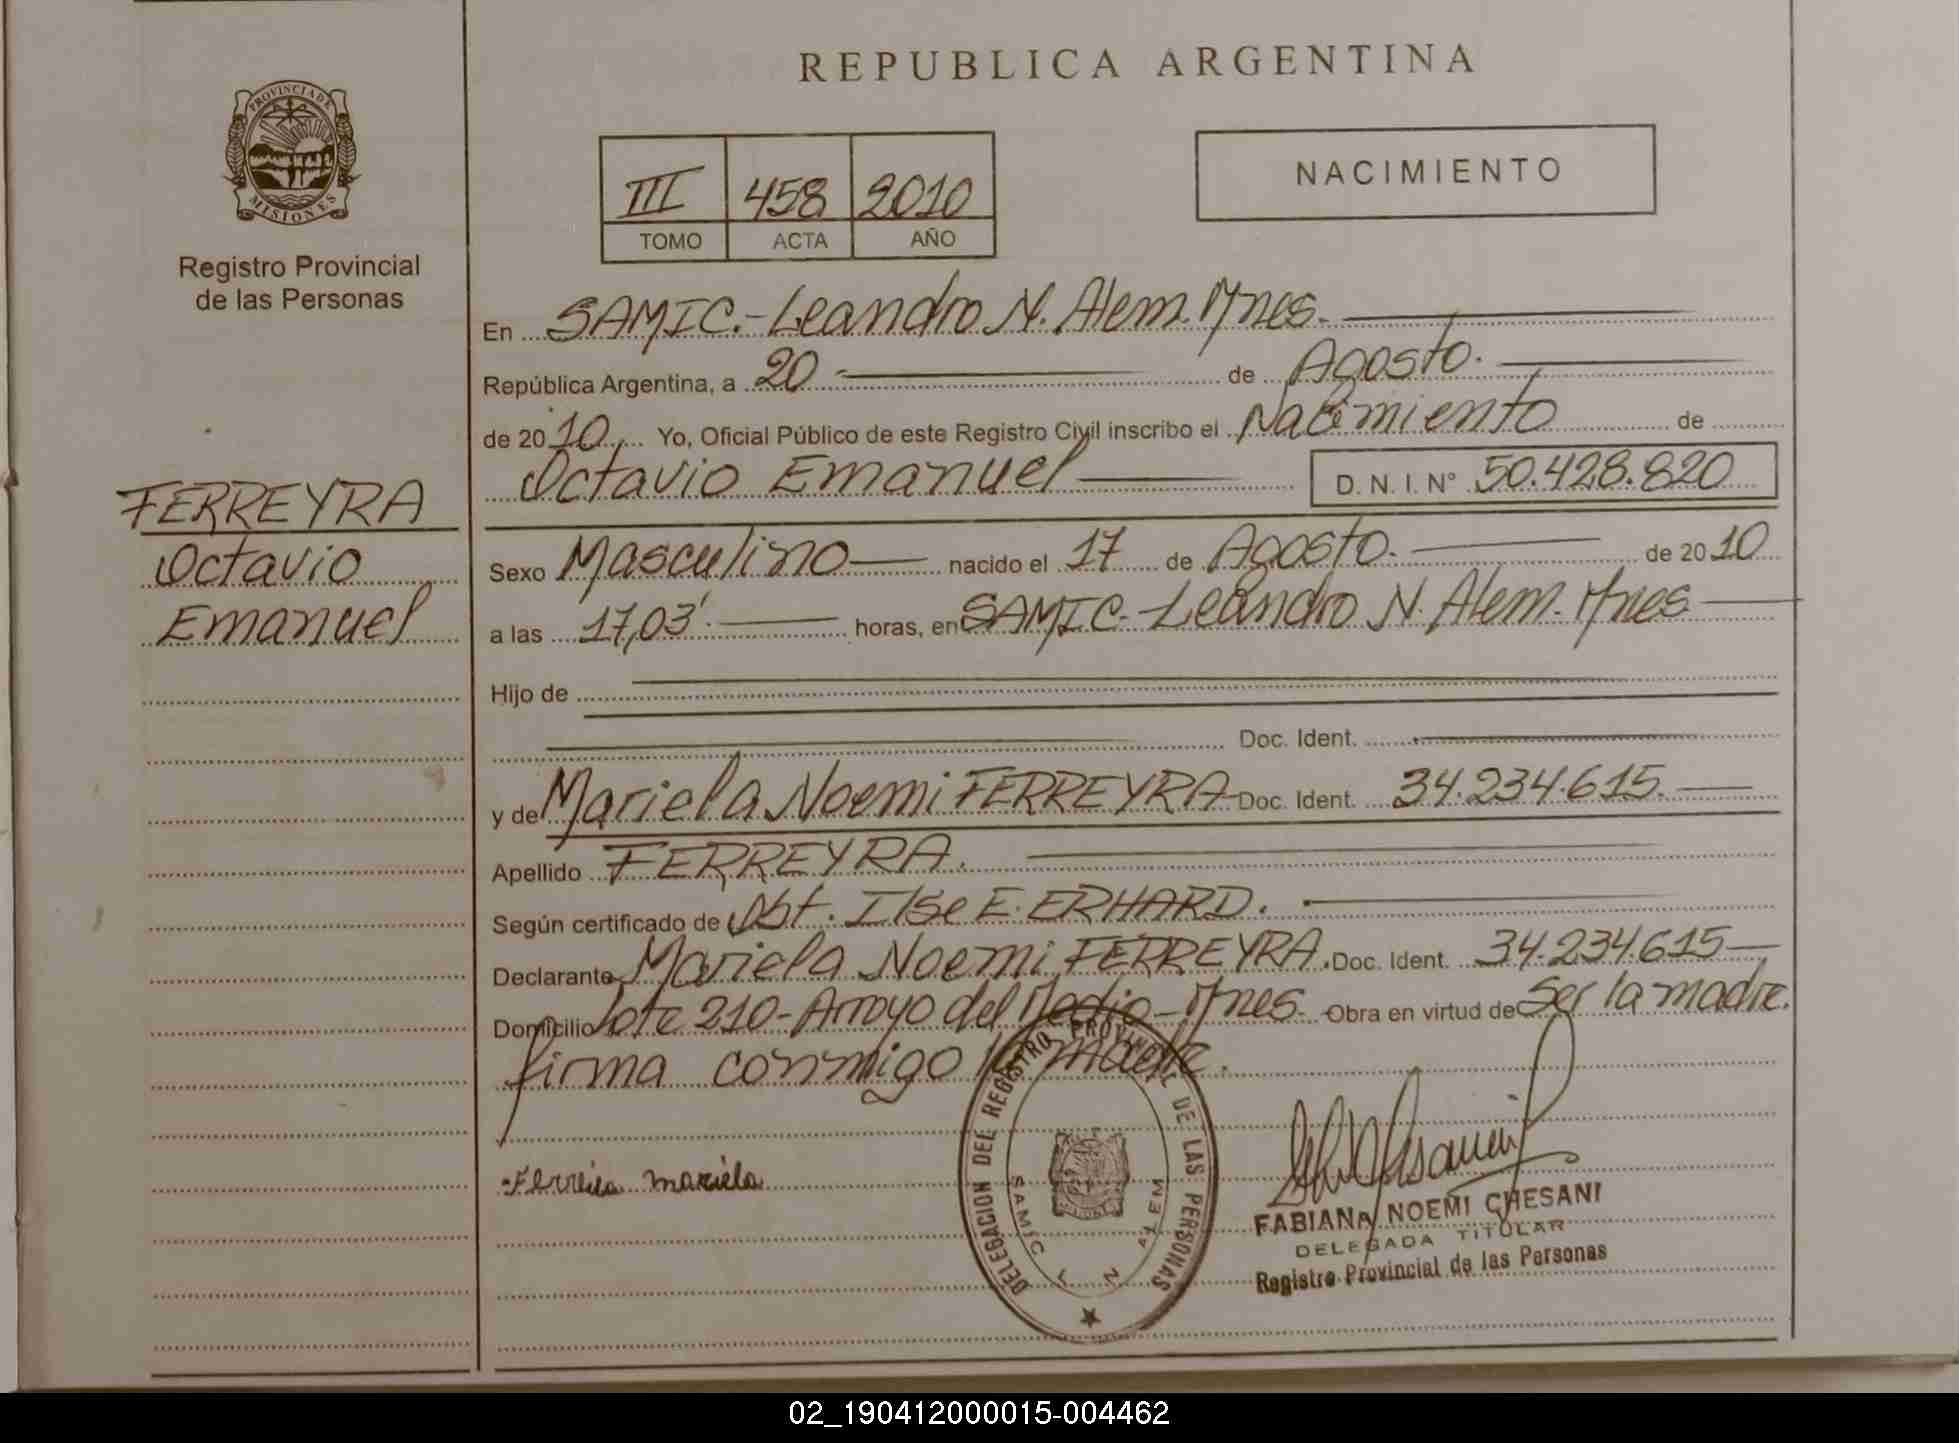 REPUBLICA ARGENTINA
PROVINCIA DE
MISIONES
Registro Provincial
de las Personas
III 458 2010
TOMO ACTA AÑO
NACIMIENTO
En SAMIC.-Leandro N. Alem. Mnes.
República Argentina, a 20 de Agosto.
de 2010 Yo, Oficial Público de este Registro Civil inscribo el Nacimiento de
Octavio Emanuel D. N. I. N° 50.428.820
FERREYRA
Octavio
Emanuel
Sexo Masculino nacido el 17 de Agosto. de 2010
a las 17,03'. horas, en SAMIC-Leandro N. Alem. Mnes
Hijo de
Doc. Ident.
y de Mariela Noemi FERREYRA Doc. Ident. 34.234.615.
Apellido FERREYRA.
Según certificado de Obt. Ilse E. ERHARD.
Declarante Mariela Noemi FERREYRA. Doc. Ident. 34.234.615
Domicilio lote 210-Arroyo del Medio-Mnes. Obra en virtud de Ser la madre.
firma conmigo la madre.
Ferreira mariela
DELEGACION DEL REGISTRO PROVINCIAL DE LAS PERSONAS
SAMIC L N ALEM
FABIANA NOEMI CHESANI
DELEGADA TITULAR
Registro Provincial de las Personas
02_190412000015-004462